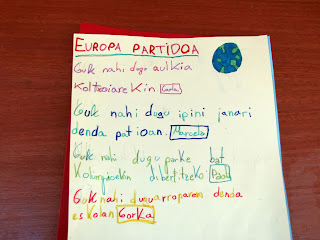 EUROPA PARTIDOA
Guk nahi dugu aulkia
Koltxoiarekin Carla
Guk nahi dugu ipini janari
denda patioan. Marcela
Guk nahi dugu parke bat
Kolunpioekin dibertitzeko.
Guk nahi dugu arroparen denda
eskolan Gorka